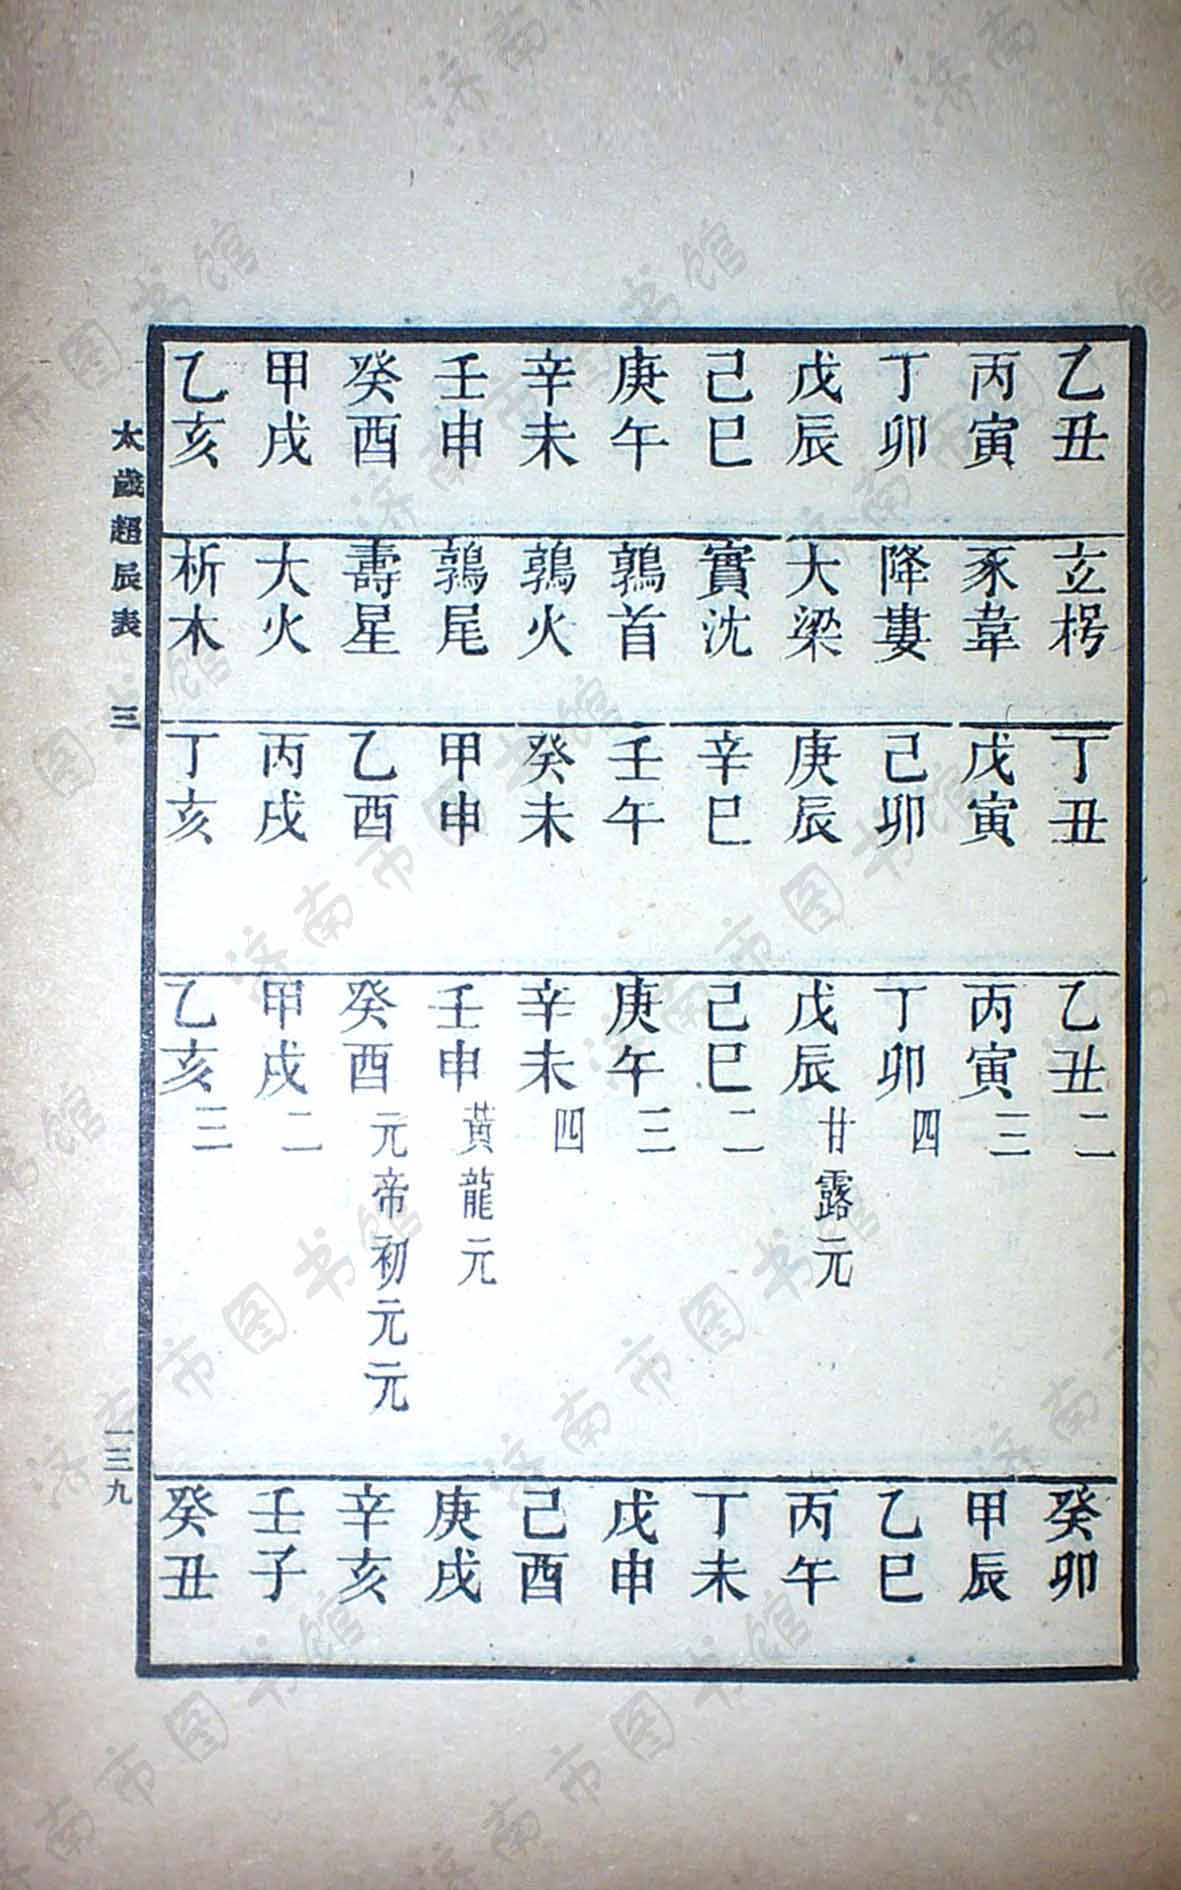 乙丑 立枵 丁丑 乙丑二 癸卯
丙寅 豕韋 戊寅 丙寅三 甲辰
丁卯 降婁 己卯 丁卯四 乙巳
戊辰 大梁 庚辰 戊辰甘露元 丙午
己巳 實沈 辛巳 己巳二 丁未
庚午 鶉首 壬午 庚午三 戊申
辛未 鶉火 癸未 辛未四 己酉
壬申 鶉尾 甲申 壬申黃龍元 庚戌
癸酉 壽星 乙酉 癸酉元帝初元元 辛亥
甲戌 大火 丙戌 甲戌二 壬子
乙亥 析木 丁亥 乙亥三 癸丑
太歲超辰表 三 一三九
济南市图书馆